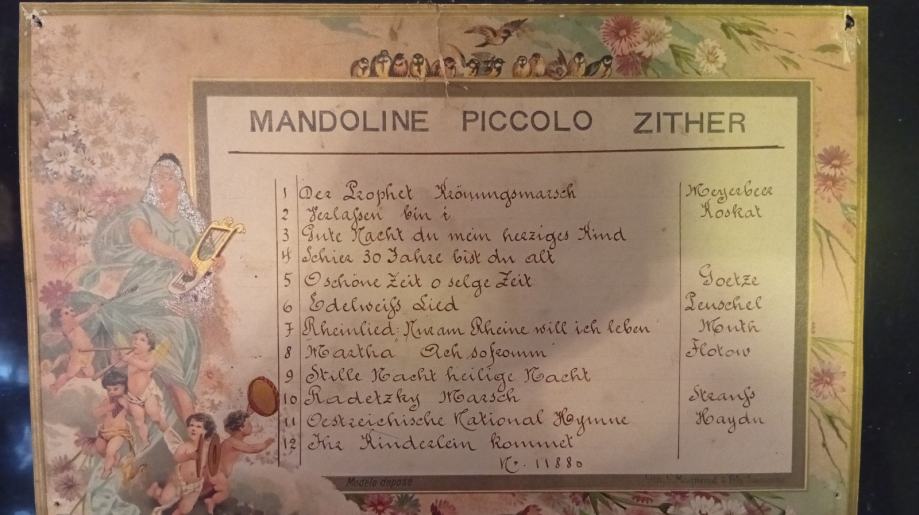 MANDOLINE PICCOLO ZITHER
1 Der Prophet Krönungsmarsch Meyerbeer
2 Verlaſsen bin i Koskat
3 Gute Nacht du mein herziges Kind
4 Schier 30 Jahre bist du alt
5 O schöne Zeit o selge Zeit Goetze
6 Edelweiſs Lied Peuschel
7 Rheinlied: Nur am Rheine will ich leben Muth
8 Martha Ach so fromm Flotow
9 Stille Nacht heilige Nacht
10 Radetzky Marsch Strauſs
11 Oestreichische National Hymne Haydn
12 Ihr Kinderlein kommet
No. 11880
Modele deposé